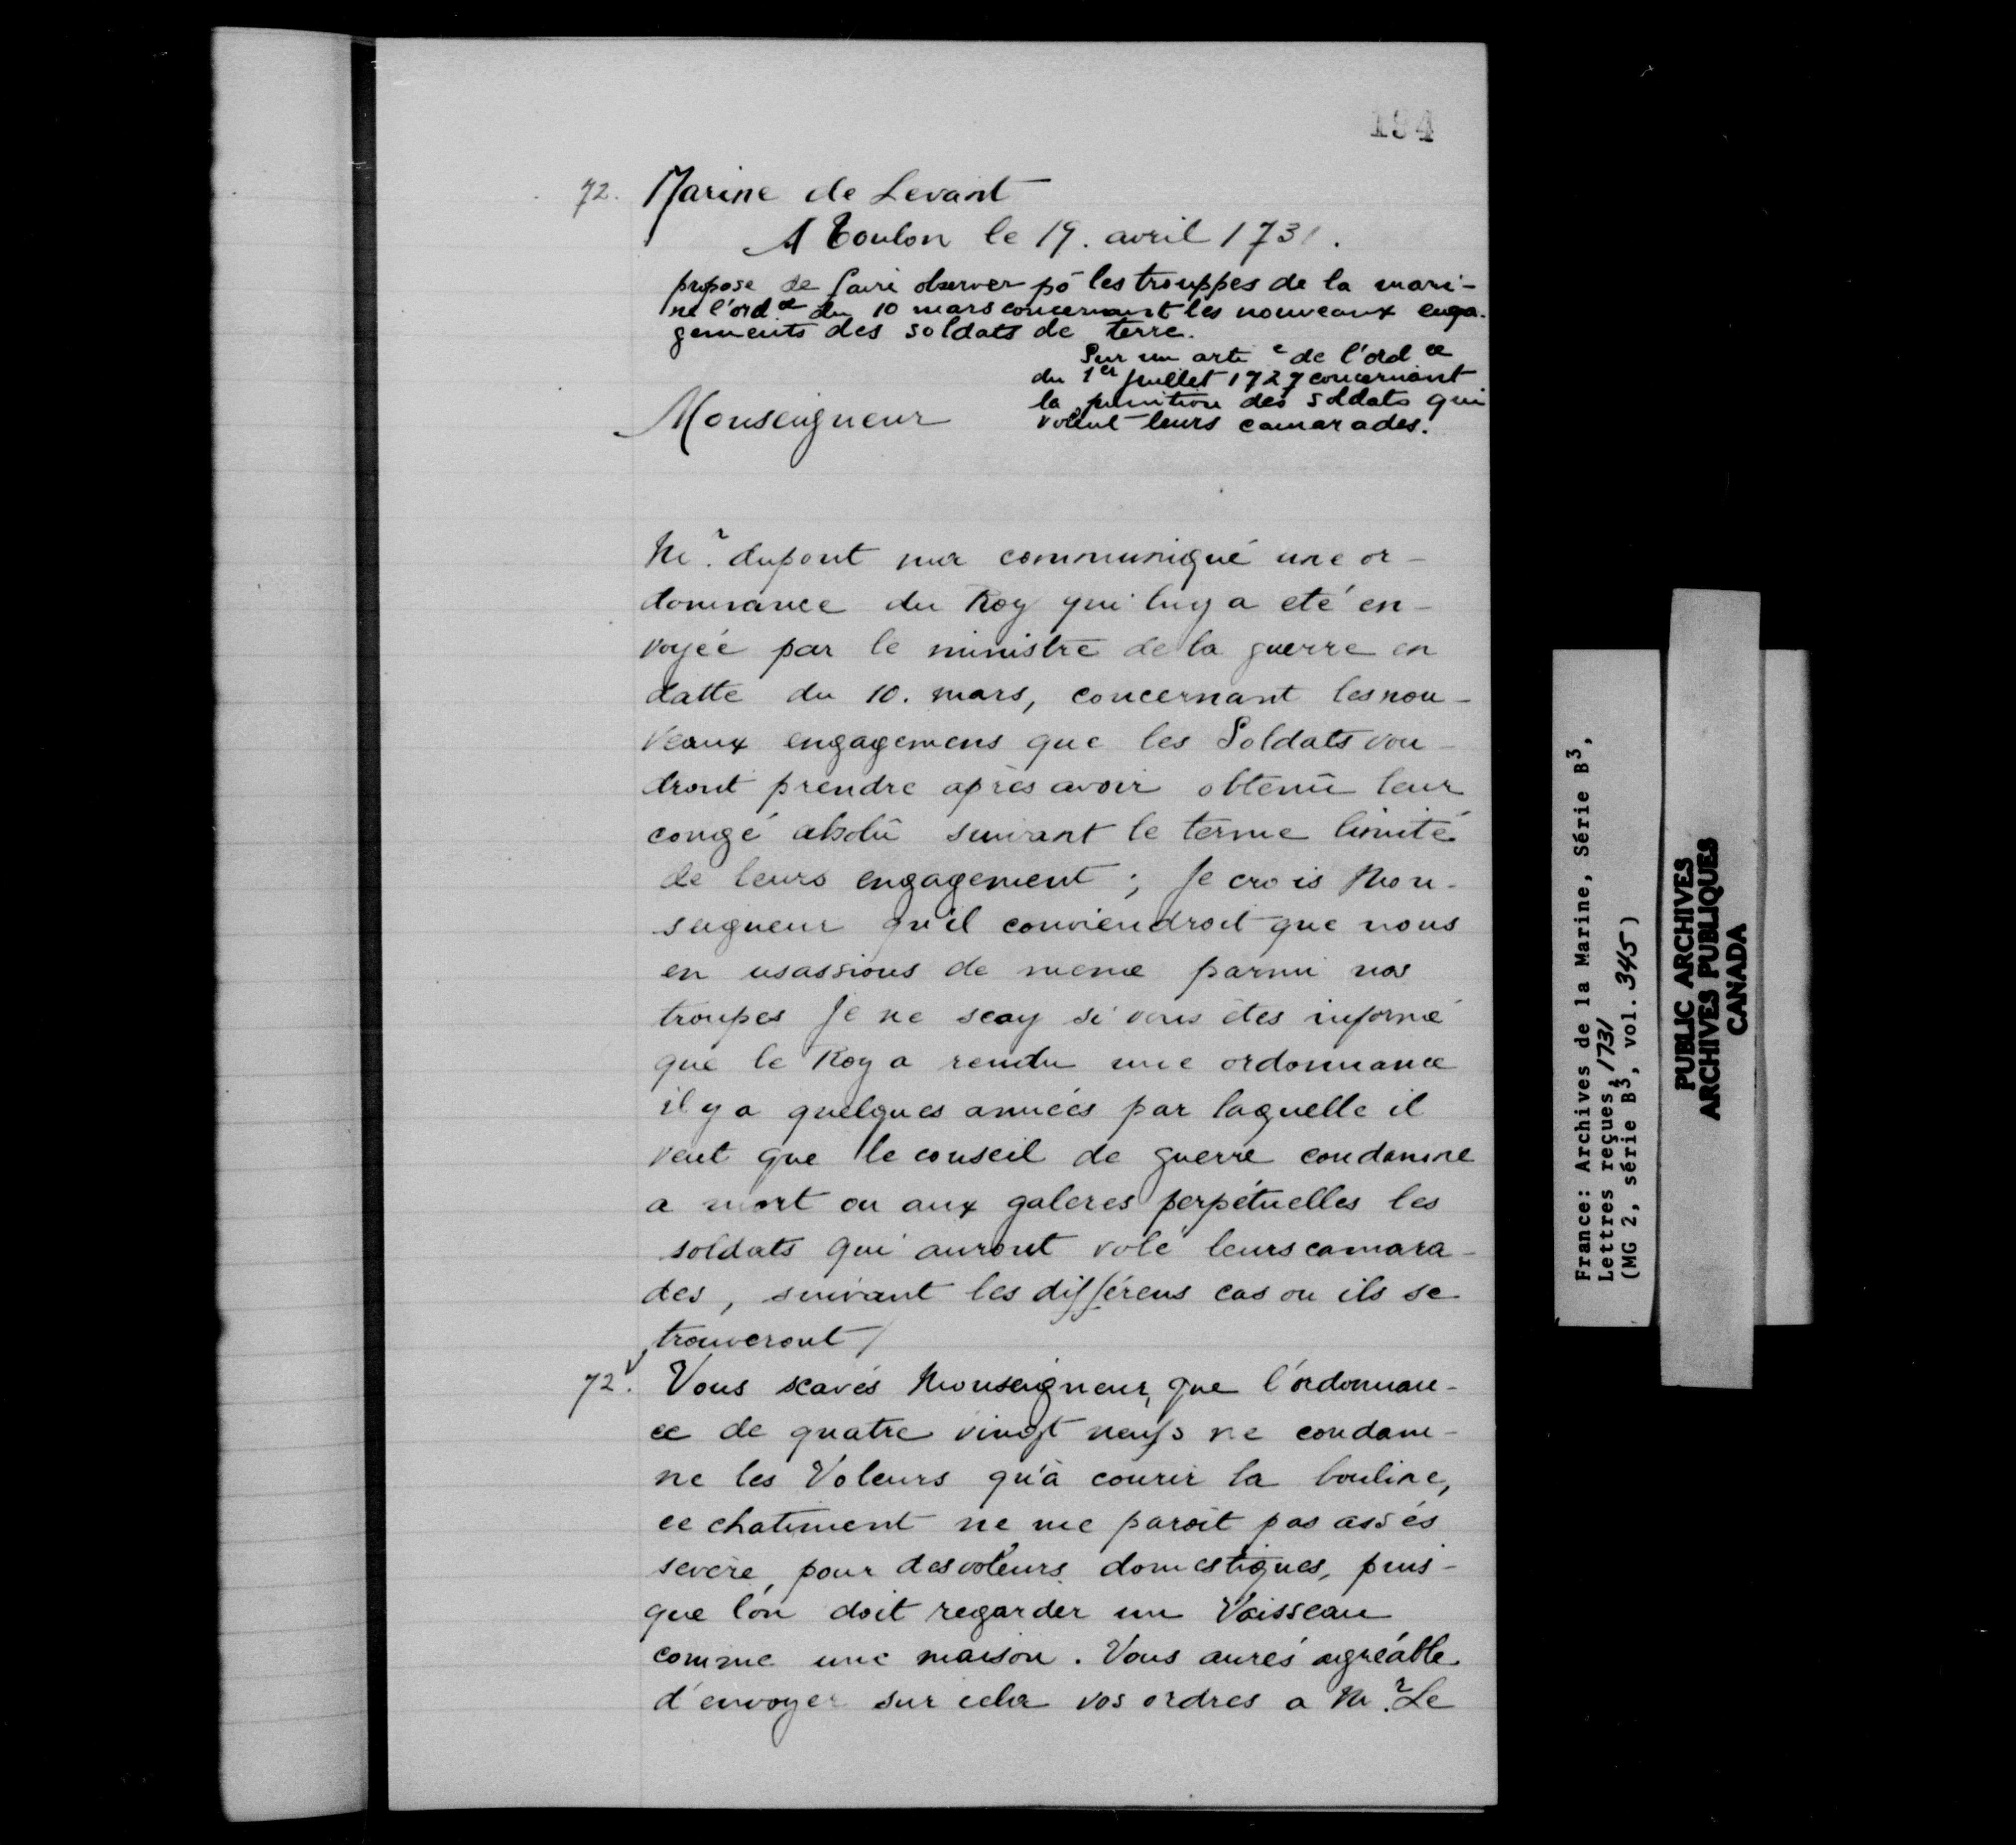 194
72. Marine de Levant
A Toulon le 19. avril 1731.
propose de faire observer pō les trouppes de la mari-
ne l'ord ce du 10 mars concernant les nouveaux enga-
gements des soldats de terre.
Sur un arti e de l'ord ce
du 1er Juillet 1727 concernant
la punition des soldats qui
volent leurs camarades.
Monseigneur
Mr. dupont ma communiqué une or-
donnance du Roy qui luy a eté en-
voyée par le ministre de la guerre en
datte du 10. mars, concernant les nou-
veaux engagemens que les Soldats vou-
dront prendre après avoir obtenû leur
congé absolû suivant le terme limité
de leurs engagement ; Je crois Mon-
seigneur qu'il conviendroit que nous
en usassions de meme parmi nos
troupes Je ne scay si vous étes informé
que le Roy a rendu une ordonnance
il y a quelques années par laquelle il
veut que le conseil de guerre condamne
a mort ou aux galeres perpétuelles les
soldats qui auront volé leurs camara-
des, suivant les différens cas ou ils se
trouveront /
72v. Vous scavés Monseigneur, que l'ordonnan-
ce de quatre vingt neufs ne condam-
ne les Voleurs qu'à courir la bouline,
ce chatiment ne me paroit pas assés
severe, pour des voleurs domestiques, puis-
que l'on doit regarder un Vaisseau
comme une maison. Vous aurés agréable
d'envoyer sur cela vos ordres a Mr. Le
France: Archives de la Marine, Série B3,
Lettres reçues, 1731
(MG 2, série B3, vol. 345)
PUBLIC ARCHIVES
ARCHIVES PUBLIQUES
CANADA